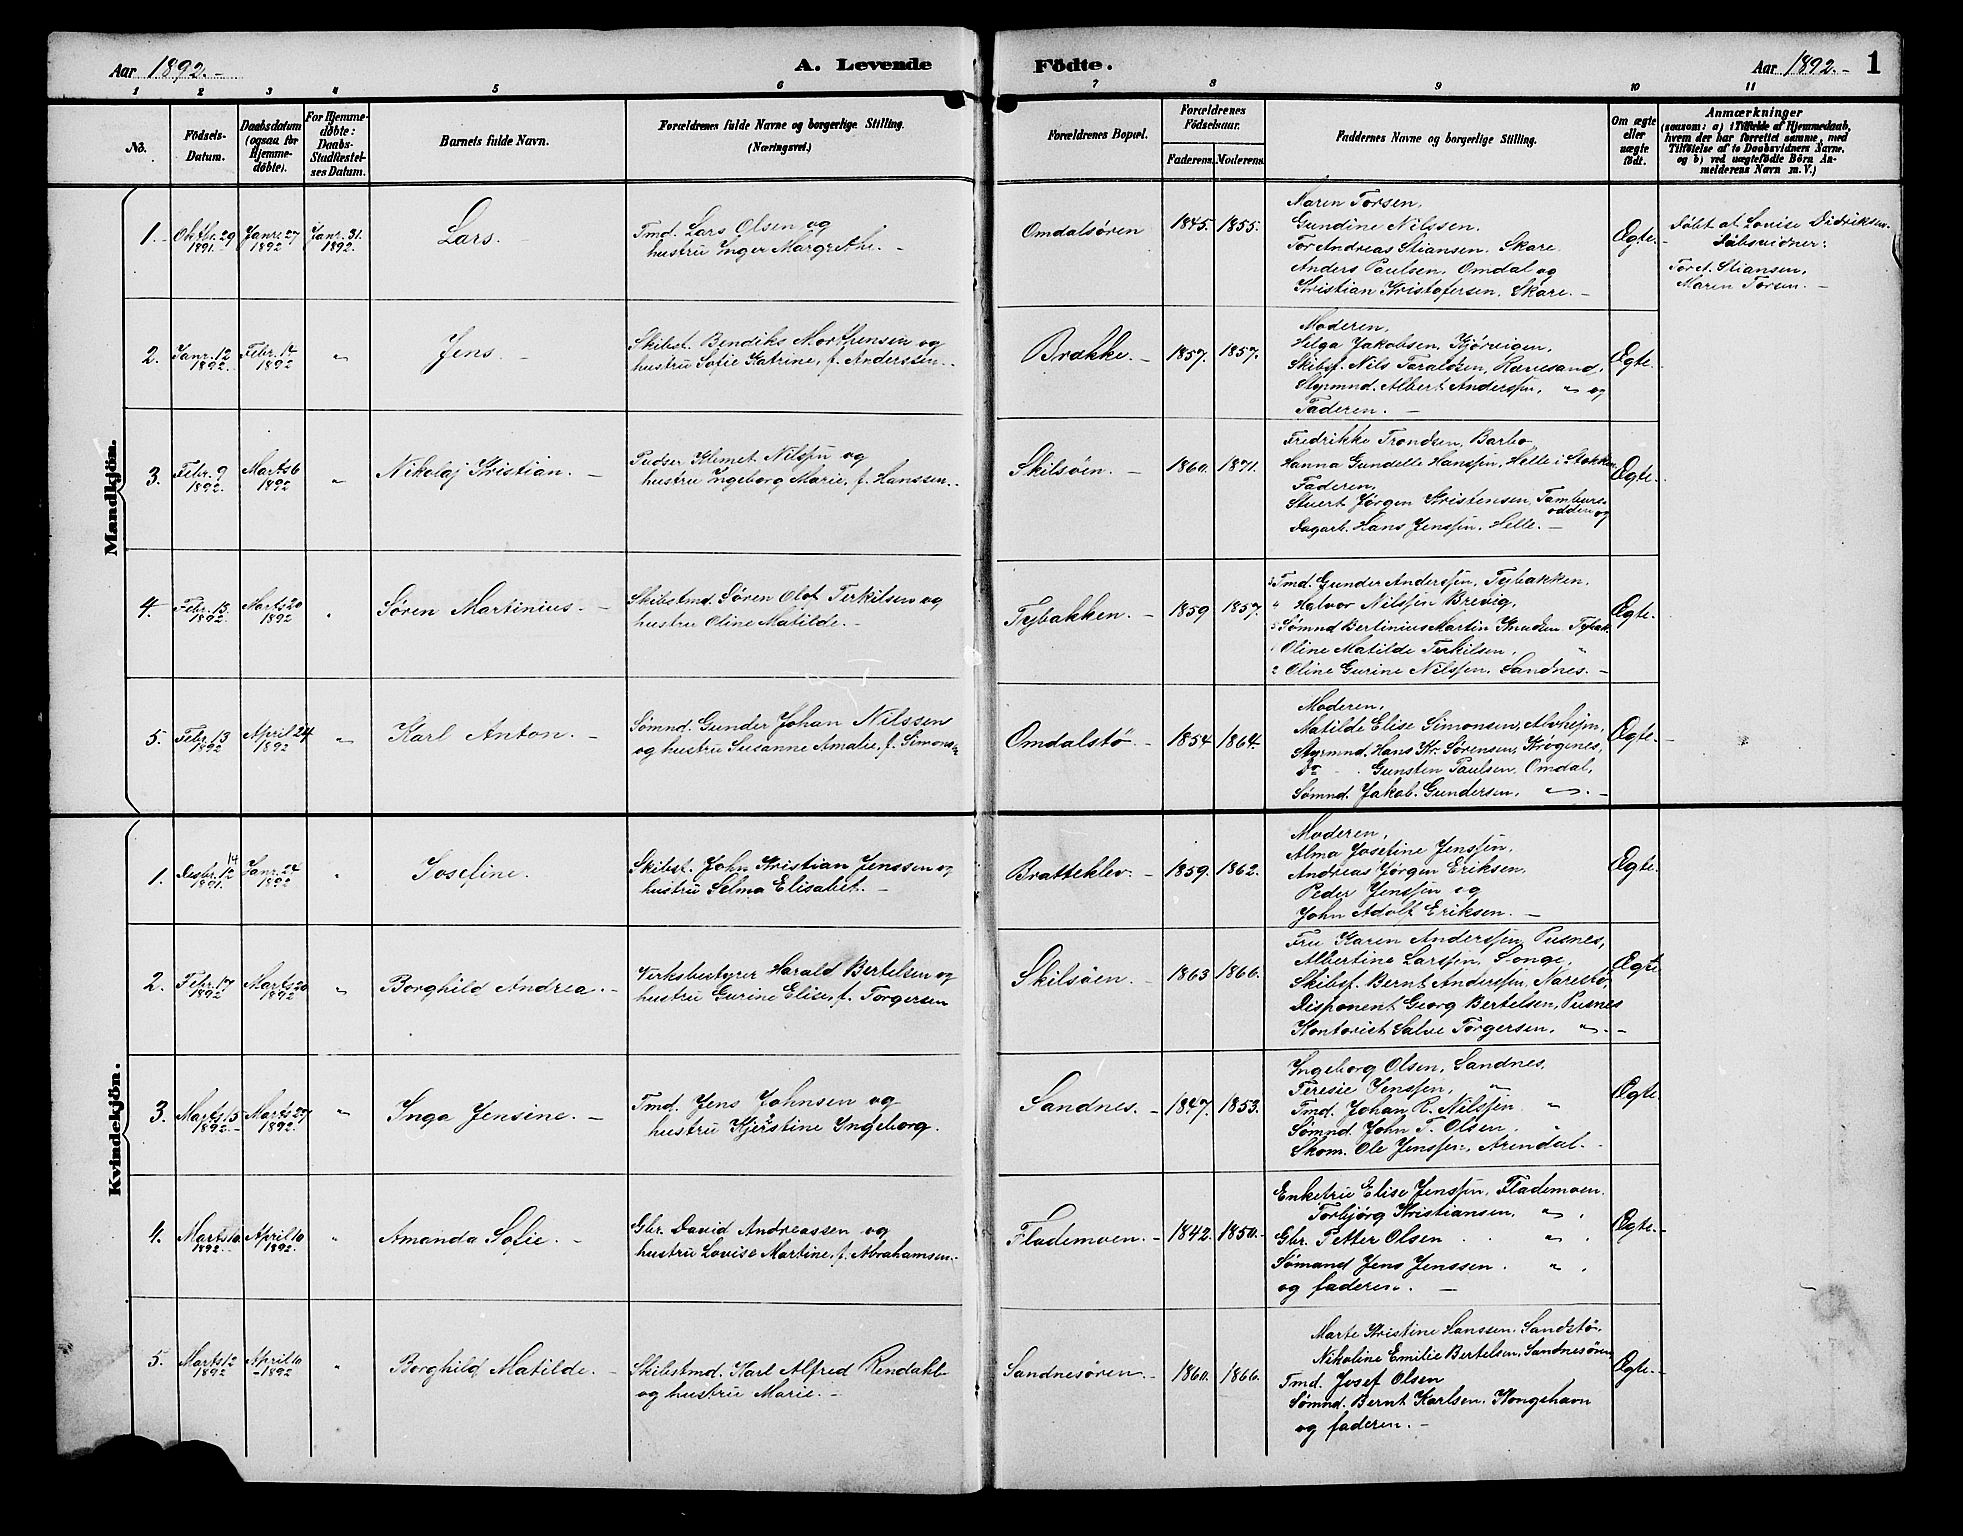 Aar 1892.-
A. Levende Födte.
Aar 1892.- 1
1 2 3 4 5 6 7 8 9 10 11
No.
Födsels-
Datum.
Daabsdatum
(ogsaa for
Hjemme-
döbte).
For Hjemme-
döbte:
Daabs-
Stadfæstel-
ses Datum.
Barnets fulde Navn.
Forældrenes fulde Navne og borgerlige Stilling.
(Næringsvei.)
Forældrenes Bopæl.
Forældrenes
Födselsaar.
Faderens. Moderens.
Faddernes Navne og borgerlige Stilling.
Om ægte
eller
uægte
födt.
Anmærkninger
(saasom: a) i Tilfælde af Hjemmedaab,
hvem der har forrettet samme, med
Tilföielse af to Daabsvidners Navne,
og b) ved uægtefödte Börn An-
melderens Navn m. V.)
Mandkjön.
1. Oktbr. 29 1891. Janr. 27 1892 Janr. 31. 1892.
Lars. -
Tmd. Lars Olsen og
hustru Inger Margrethe.
Omdalsøren 1845. 1855.
Maren Torsen,
Gundine Nilssen.
Tor Andreas Stiansen, Skare.
Anders Paulsen, Omdal og
Kristian Kristofersen, Skare. -
Ægte.
Døbt af Lovise Didriksen.
Døbsvidner:
Tor A. Stiansen,
Maren Torsen. -
2. Janr. 12 1892. Febr. 14 1892 "
Jens. -
Skibsf. Bendiks Morthensen og
hustru Sofie Katrine, f. Anderssen.
Brække. - 1857. 1857.
Moderen,
Helga Jakobsen, Kjørvigen,
Skibsf. Nils Taraldsen, Rævesand,
Styrmnd. Albert Anderssen, " og
Faderen. -
Ægte.
3. Febr. 9 1892. Marts 6 1892 "
Nikolaj Kristian. -
Pudser Klemet Nilssen og
hustru Ingeborg Marie, f. Hanssen.
Skilsøen. - 1860. 1871.
Fredrikke Trondsen, Barbo
Hanna Gundelle Hanssen, Helle i Stokken
Faderen,
Stuert Jørgen Kristensen, Tambures-
odden og
Dagarb. Hans Jenssen, Helle. -
Ægte.
4. Febr. 13. 1892. Marts 20 1892 "
Søren Martinius. -
Skibstmd. Søren Olot Terkilsen og
hustru Oline Matilde. -
Tybakken. - 1859 1857.
3 Tmd. Gunder Anderssen, Tybakken.
4 Halvor Nilssen Brevig,
5 Sømnd Bertinius Martin Knudsen Tybak.
1 Oline Matilde Terkilsen, "
2 Oline Gurine Nilssen, Sandnes. -
Ægte.
5. Febr. 13 1892 April 24 1892 "
Karl Anton. -
Sømnd. Gunder Johan Nilssen
og hustru Susanne Amalie, f. Simonsn
Omdalstø. - 1854 1864.
Moderen,
Matilde Elise Simonsen, Alvhejm,
Styrmnd. Hans Kr. Sørensen, Krøgenes,
Do Gunsten Paulsen, Omdal,
Sømnd. Jakob Gundersen, " -
Ægte.
Kvindekjön.
1. Desbr. 12 14 1891. Janr. 24 1892 "
Josefine.
Skibst. John Kristian Jenssen og
hustru Selma Elisabet. -
Bratteklev. - 1859. 1862.
Moderen,
Alma Josefine Jenssen,
Andreas Jørgen Eriksen,
Peder Jenssen og
John Adolf Eriksen. -
Ægte.
2. Febr. 17 1892 Marts 20 1892 "
Borghild Andrea. -
Verksbestyrer Harald Bertelsen og
hustru Gurine Elise, f. Torgersen
Skilsøen. 1863 1866.
Fru Karen Anderssen, Pusnes,
Albertine Larssen, Songe,
Skibsf. Bernt Anderssen, Narestø,
Disponent Georg Bertelsen, Pusnes
Kontorist Salve Torgersen, " -
Ægte
3. Marts 15 1892. Marts 27 1892. "
Inga Jensine. -
Tmd. Jens Johnsen og
hustru Kjerstine Ingeborg.
Sandnes. - 1847. 1853.
Ingeborg Olsen, Sandnes,
Teresie Jenssen, "
Tmd. Johan R. Nilssen. "
Sømnd. John T. Olsen, "
Skom. Ole Jenssen, Arendal. -
Ægte.
4. Marts 10 1892. April 10 1892. "
Amanda Sofie. -
Gbr. David Andreassen og
hustru Lovise Martine, f. Abrahamsen.
Flademoen. - 1842. 1850.
Enkefru Elise Jenssen, Flademoen.
Torbjørg Kristiansen, " .
Gbr. Petter Olsen " .
Sømand Jens Jenssen. " .
og faderen. -
Ægte.
5. Marts 12 1892 April 10 1892 "
Borghild Matilde. -
Skibstmd. Karl Alfred Rendahl
og hustru Marie. -
Sandnesøren. - 1860. 1866.
Marte Kristine Hanssen, Sandstø,
Nikoline Emilie Bertelsen, Sandnesøren,
Tmd. Josef Olsen
Sømnd. Bernt Karlsen, Kongshavn
og faderen. -
Ægte.